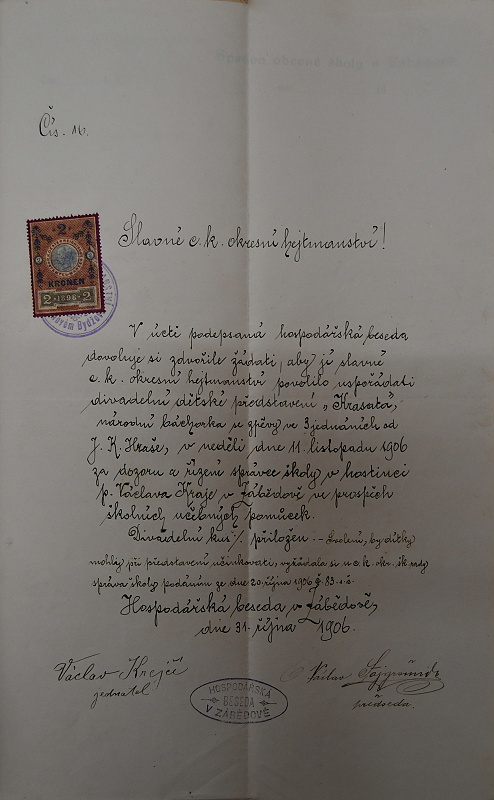 Čís. 16.
Slavné c. k. okresní hejtmanství!
2
KRONEN
2 1898 2
V úctě podepsaná hospodářská beseda
dovoluje si zdvořile žádati, aby jí slavné
c. k. okresní hejtmanství povolilo uspořádati
divadelní dětské představení „Krasata“,
národní báchorka se zpěvy ve 3 jednáních od
J. K. Hraše, v neděli dne 11. listopadu 1906
za dozoru a řízení správce školy v hostinci
p. Václava Kraje v Zábědově ve prospěch
školních učebných pomůcek.
Divadelní kus ./. přiložen. – Svolení, by dítky
mohly při představení účinkovati, vyžádala si u c. k. okr. šk. rady
správa školy podáním ze dne 20. října 1906 č. 83.
Hospodářská beseda v Zábědově,
dne 31. října 1906.
Václav Krejčí
jednatel
Václav
předseda.
HOSPODÁŘSKÁ
BESEDA
V ZÁBĚDOVĚ